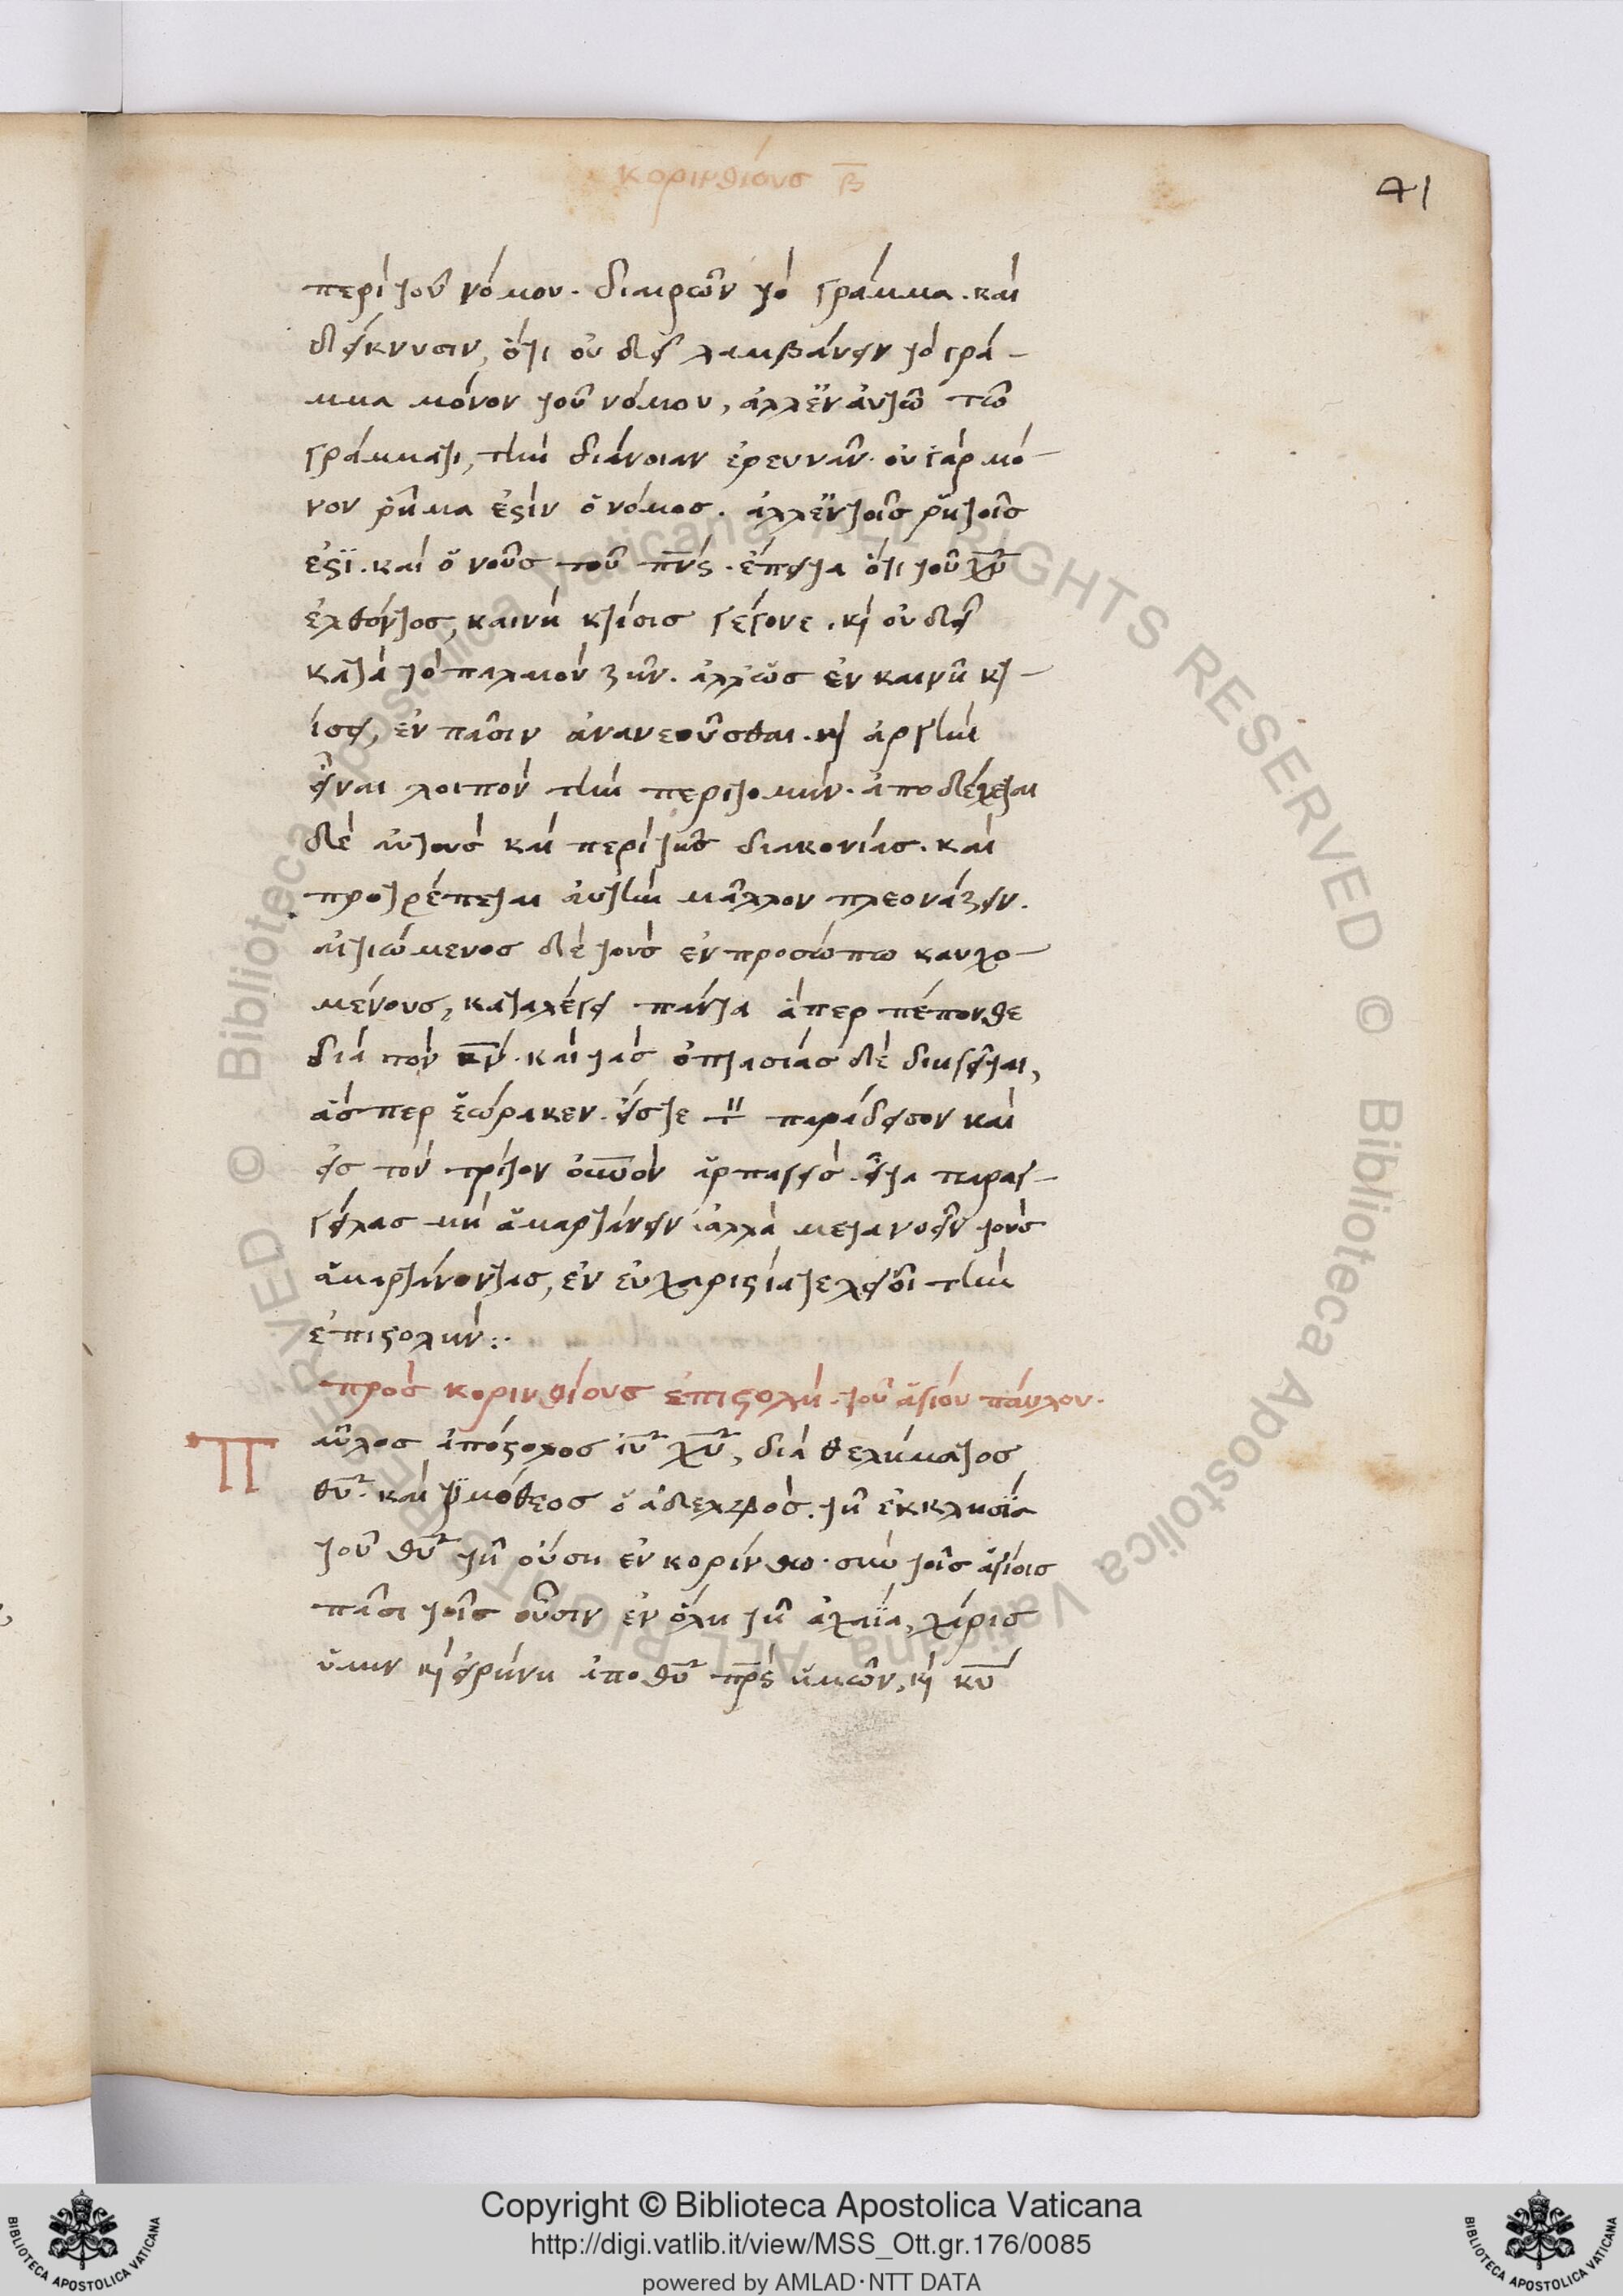 κορινθίους β̅
41
περὶ τοῦ νόμου. διαιρῶν τὸ γράμμα. καὶ
δείκνυσιν, ὅτι οὐ δεῖ λαμβάνειν τὸ γρά-
μμα μόνον τοῦ νόμου, ἀλλ' ἐν ἀυτῶ τῶ
γράμματι, τὴν διάνοιαν ἐρευνᾶν. οὐ γὰρ μό-
νον ῥῆμα ἐστὶν ὁ νόμος. ἀλλ' ἐν τοῖς ῥητοῖς
ἐστὶ. καὶ ὁ νοῦς τοῦ πν̅ς. ἔπειτα ὅτι τοῦ χ̅υ
ἐλθόντος, καινὴ κτίσις γέγονε. κὶ οὐ δεῖ
κατὰ τὸ παλαιὸν ζῆν. ἀλλ' ὡς ἐν καινῆ κτ-
ίσει, ἐν πᾶσιν ἀνανεοῦσθαι. κὶ ἀργὴν
εἶναι λοιπὸν τὴν περιτομήν. ἀποδέχεται
δὲ αὐτοὺς καὶ περὶ τῆς διακονίας. καὶ
προτρέπεται ἀυτὴν μᾶλλον πλεονάζειν.
αἰτιώμενος δὲ τοὺς ἐν προσώπω καυχο-
μένους, καταλέγει πάντα ἅπερ πέπονθε
διὰ τὸν κ̅ν. καὶ τὰς ὀπτασίας δὲ διηγεῖται,
ἅσπερ ἑώρακεν. εἴς τε τ παράδεισον καὶ
εἰς τὸν τρίτον ὀυ̅νὸν ἁρπαγείς. εἶτα παραγ-
γείλας μὴ ἁμαρτάνειν ἀλλὰ μετανοεῖν τοὺς
ἁμαρτάνοντας, ἐν εὐχαριστία τελειοῖ τὴν
ἐπιστολήν:.
πρὸς κορινθίους ἐπιστολὴ. τοῦ ἁγίου παύλου.
Παῦλος ἀπόστολος ἰ̅υ χ̅υ, διὰ θελήματος
θ̅υ. καὶ τιμόθεος ὁ ἀδελφὸς. τῆ ἐκκλησία
τοῦ θ̅υ τῆ οὔση ἐν κορίνθω. σὺν τοῖς ἁγίοις
πᾶσι τοῖς οὖσιν ἐν ὅλη τῆ ἀχαΐα, χάρις
ὑμιν κὶ εἰρήνη ἀπο θ̅υ π̅ρς ἡμῶν, κὶ κ̅υ
© Biblioteca Apostolica Vaticana ALL RIGHTS RESERVED © Biblioteca Apostolica Vaticana ALL RIGHTS RESERVED
Copyright © Biblioteca Apostolica Vaticana
http://digi.vatlib.it/view/MSS_Ott.gr.176/0085
powered by AMLAD·NTT DATA
BIBLIOTECA APOSTOLICA VATICANA
BIBLIOTECA APOSTOLICA VATICANA